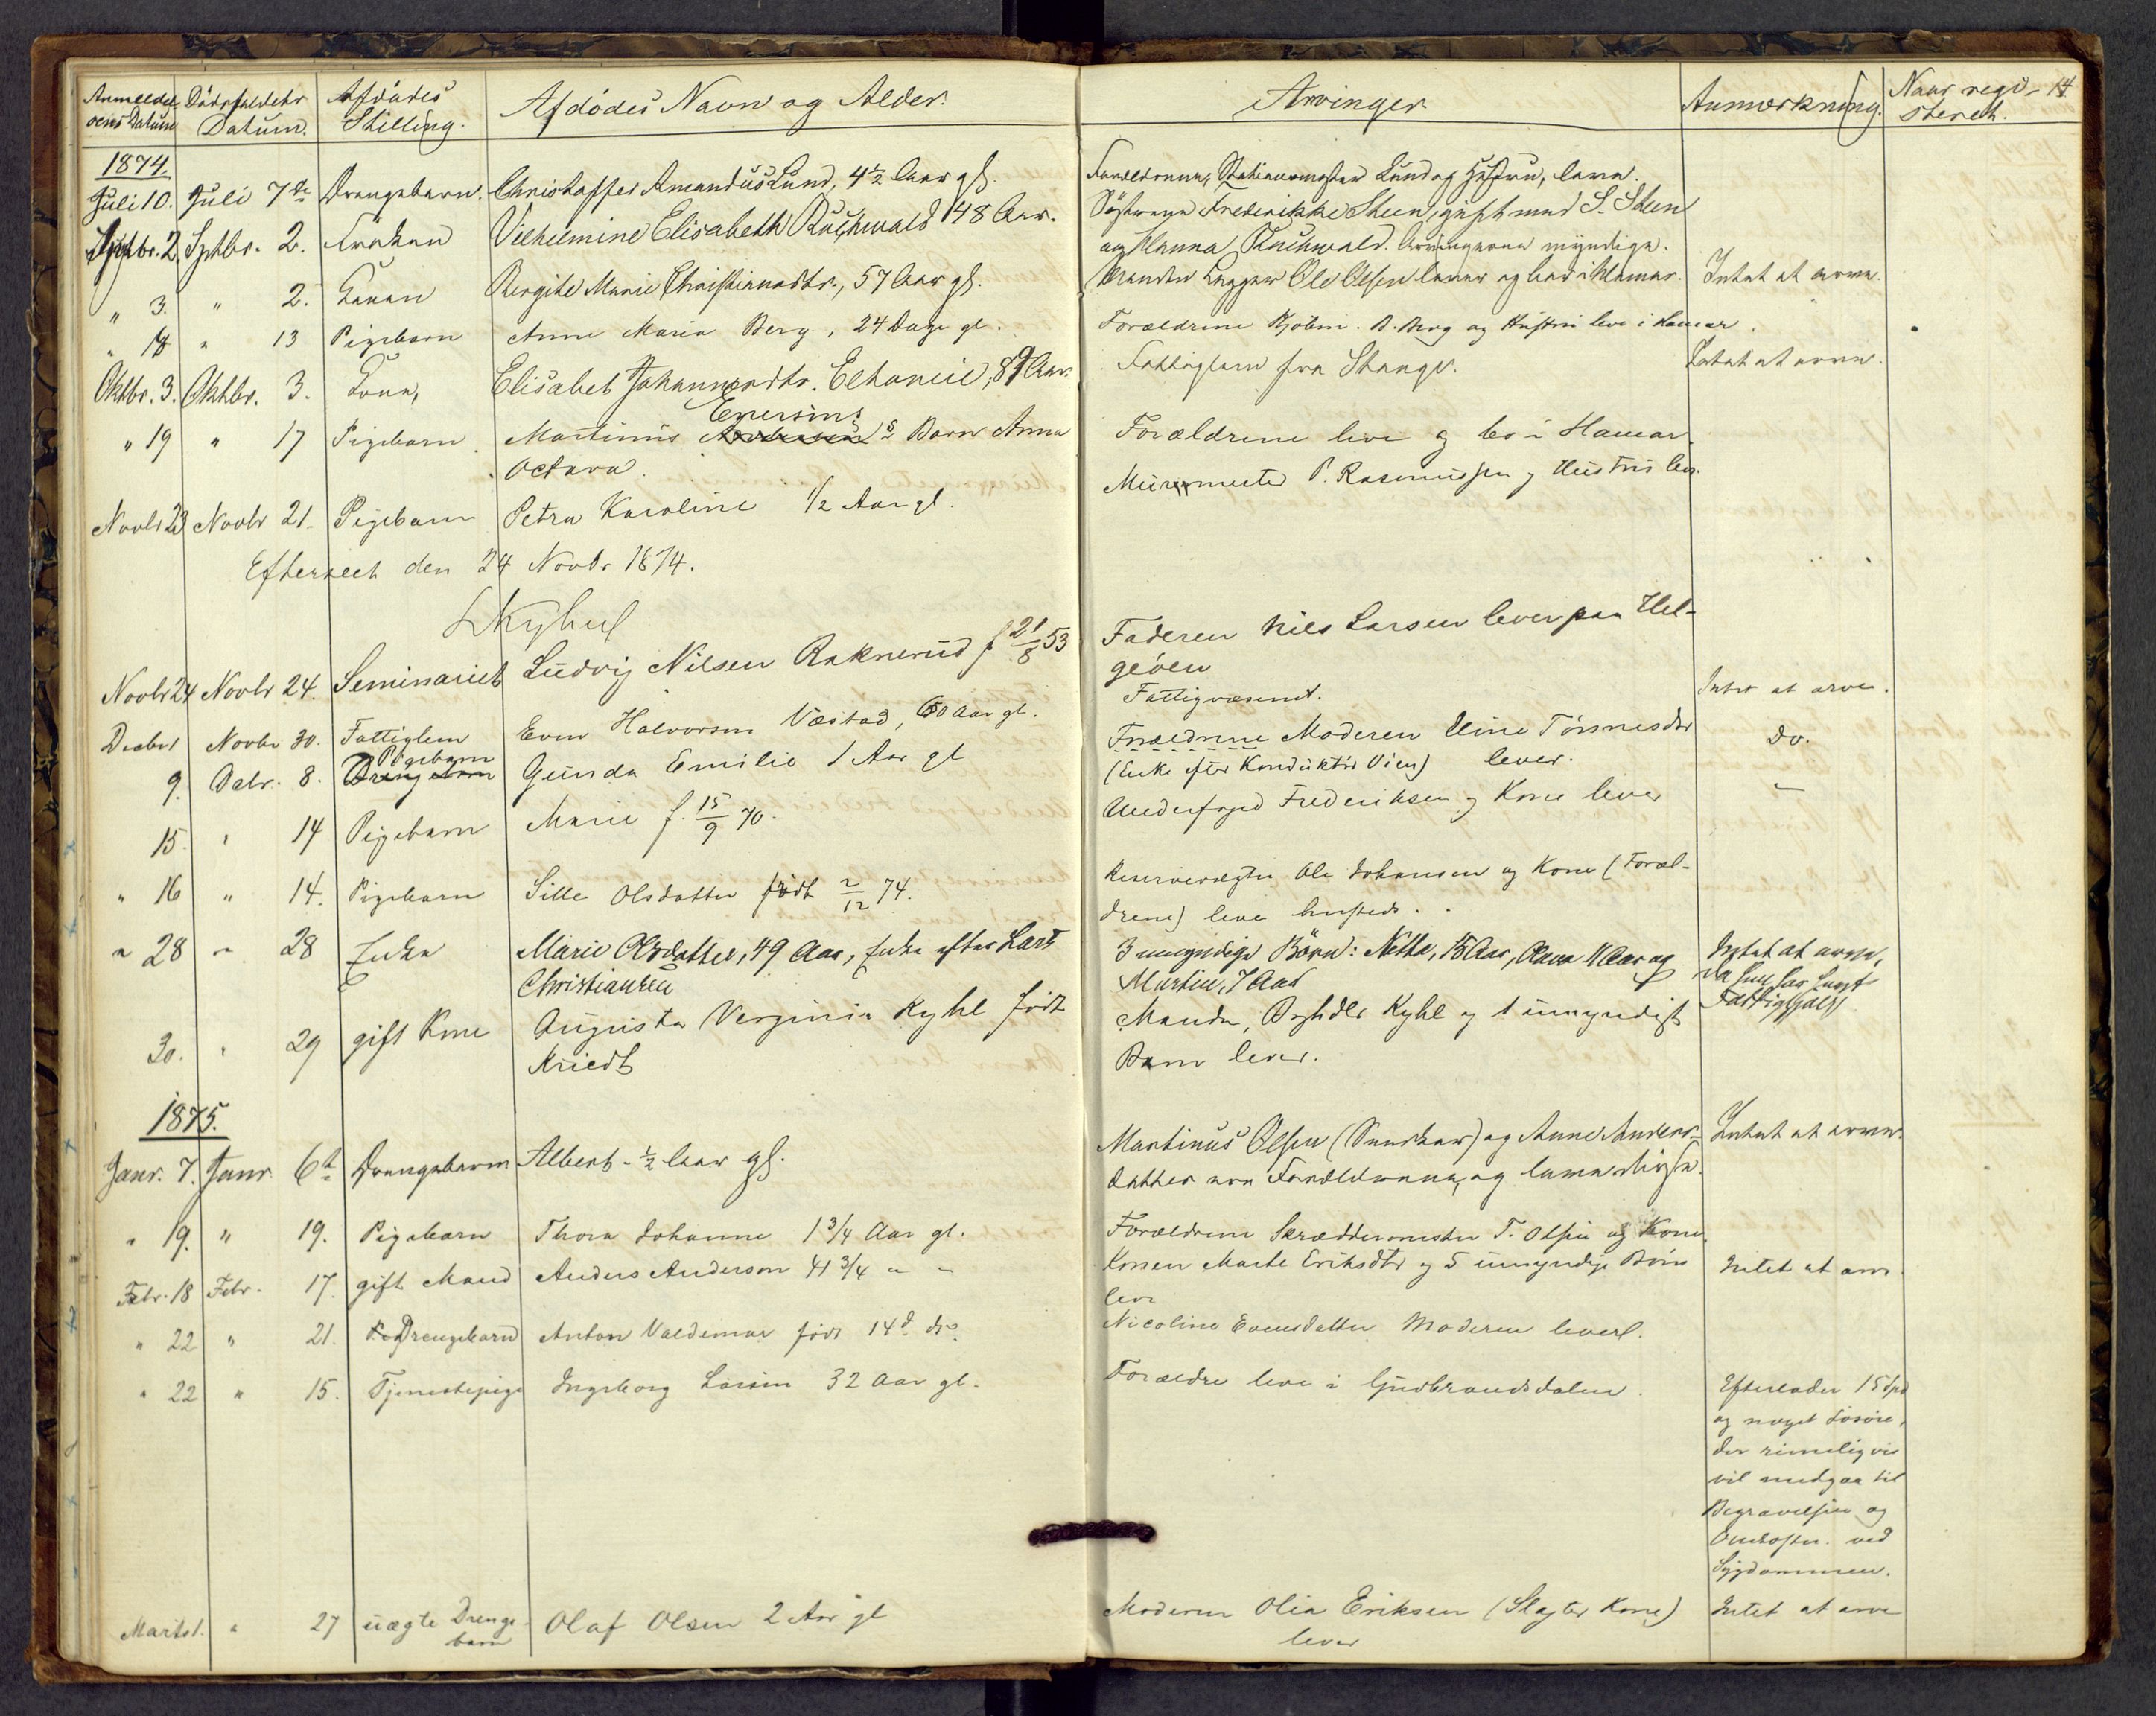 Anmeldel- Dödsfaldets Afdødes Afdødes Navn og Alder. Arvinger Anmærkning. Naar regi- 14
sens Datum Datum. Stilling. streret.
1874.
Juli 10. Juli 7de Drengebarn. Christoffer Amandus Lund, 4½ Aar gl. Forældrene, Stationsmester Lund og Hustru, leve.
Septbr. 2 Septbr. 2. Frøken Vilhelmine Elisabeth Buchwald 48 Aar. Søstrene Frederikke Steen, gift med S. Steen
og Hanna Buchwald. Arvingerne myndige.
" 3. " 2. Konen Birgite Marie Christiansdtr., 57 Aar gl. Manden Lægger Ole Olsen lever og bor i Hamar. Intet at arve.
" 14 " 13 Pigebarn Anne Maria Berg, 24 Dage gl. Forældrene Kjöbm. B. Berg og Hustru leve i Hamar.
Oktbr. 3. Oktbr. 3. Kone, Elisabet Johannesdtr. 89 Aar. Fattiglem fra Stange. Intet at arve.
Enersens
" 19 " 17 Pigebarn Martinius Børn Anna Forældrene leve og bo i Hamar.
Octava.
Novbr 23 Novbr 21. Pigebarn Petra Karoline 1/2 Aar gl. Muurmester P. Rasmussen og Hustru lev.
Efterseet den 24 Novbr 1874.
Novbr 24 Novbr 24. Seminarist Ludvig Nilsen Raknerud f 21/8 53 Faderen Nils Larsen lever paa Hel-
geöen
Decbr 1 Novbr 30. Fattiglem Even Halvorsen Væstad, 60 Aar gl. Fattigvæsenet. Intet at arve.
Pigebarn
9. Decbr. 8. Drengebarn Gunda Emilie 1 Aar gl Forældrene Moderen Eline Tönnesdtr do.
(Enke efter Konduktör Vien) lever.
15. " 14 Pigebarn Marie f. 15/9 70. Underfoged Frederiksen og Kone lever "
" 16 " 14. Pigebarn Sille Olsdatter født 2/12 74. Reservevægter Ole Johansen og Kone (Foræl-
drene) leve hersteds.
" 28 " 28 Enke Marie Olsdatter, 49 Aar, Enke efter Lars 3 umyndige Börn: Netta, 15 Aar, Olava 11 Aar og Intet at arve,
Christiansen Martin, 7 Aar da hun har havt
Fattighjælp
30. " 29 gift Kone Augusta Verginia Kyhl født Manden, Boghdlr Kyhl og 1 umyndigt
Kriedt Barn lever.
1875.
Janr. 7. Janr. 6te Drengebarn Albert - ½ Aar gl. Martinus Olsen (Snedker) og Anne Anders- Intet at arve.
datter ere Forældrene, og leve disse.
" 19. " 19. Pigebarn Thora Johanne 1 3/4 Aar gl. Forældrene Skræddermester T. Olsen og Kone.
Febr. 18 Febr. 17. gift Mand Anders Anderson 41 3/4 " " Konen Marte Eriksdtr og 5 umyndige Börn Intet at arve.
leve
" 22 " 21. Drengebarn Anton Valdemar født 14d. ds. Nicoline Evensdatter Moderen lever.
" 22 " 15. Tjenestepige Ingeborg Larsen 32 Aar gl. Forældre leve i Gudbrandsdalen. Efterlader 15 Spd
og noget Lösöre,
der rimeligvis
vil medgaa til
Begravelsen og
Omkostn. ved
Sygdommen.
Marts 1. " 27 uægte Drenge- Olaf Olsen 2 Aar gl Moderen Olia Eriksen (Slagter Kone) Intet at arve
barn lever